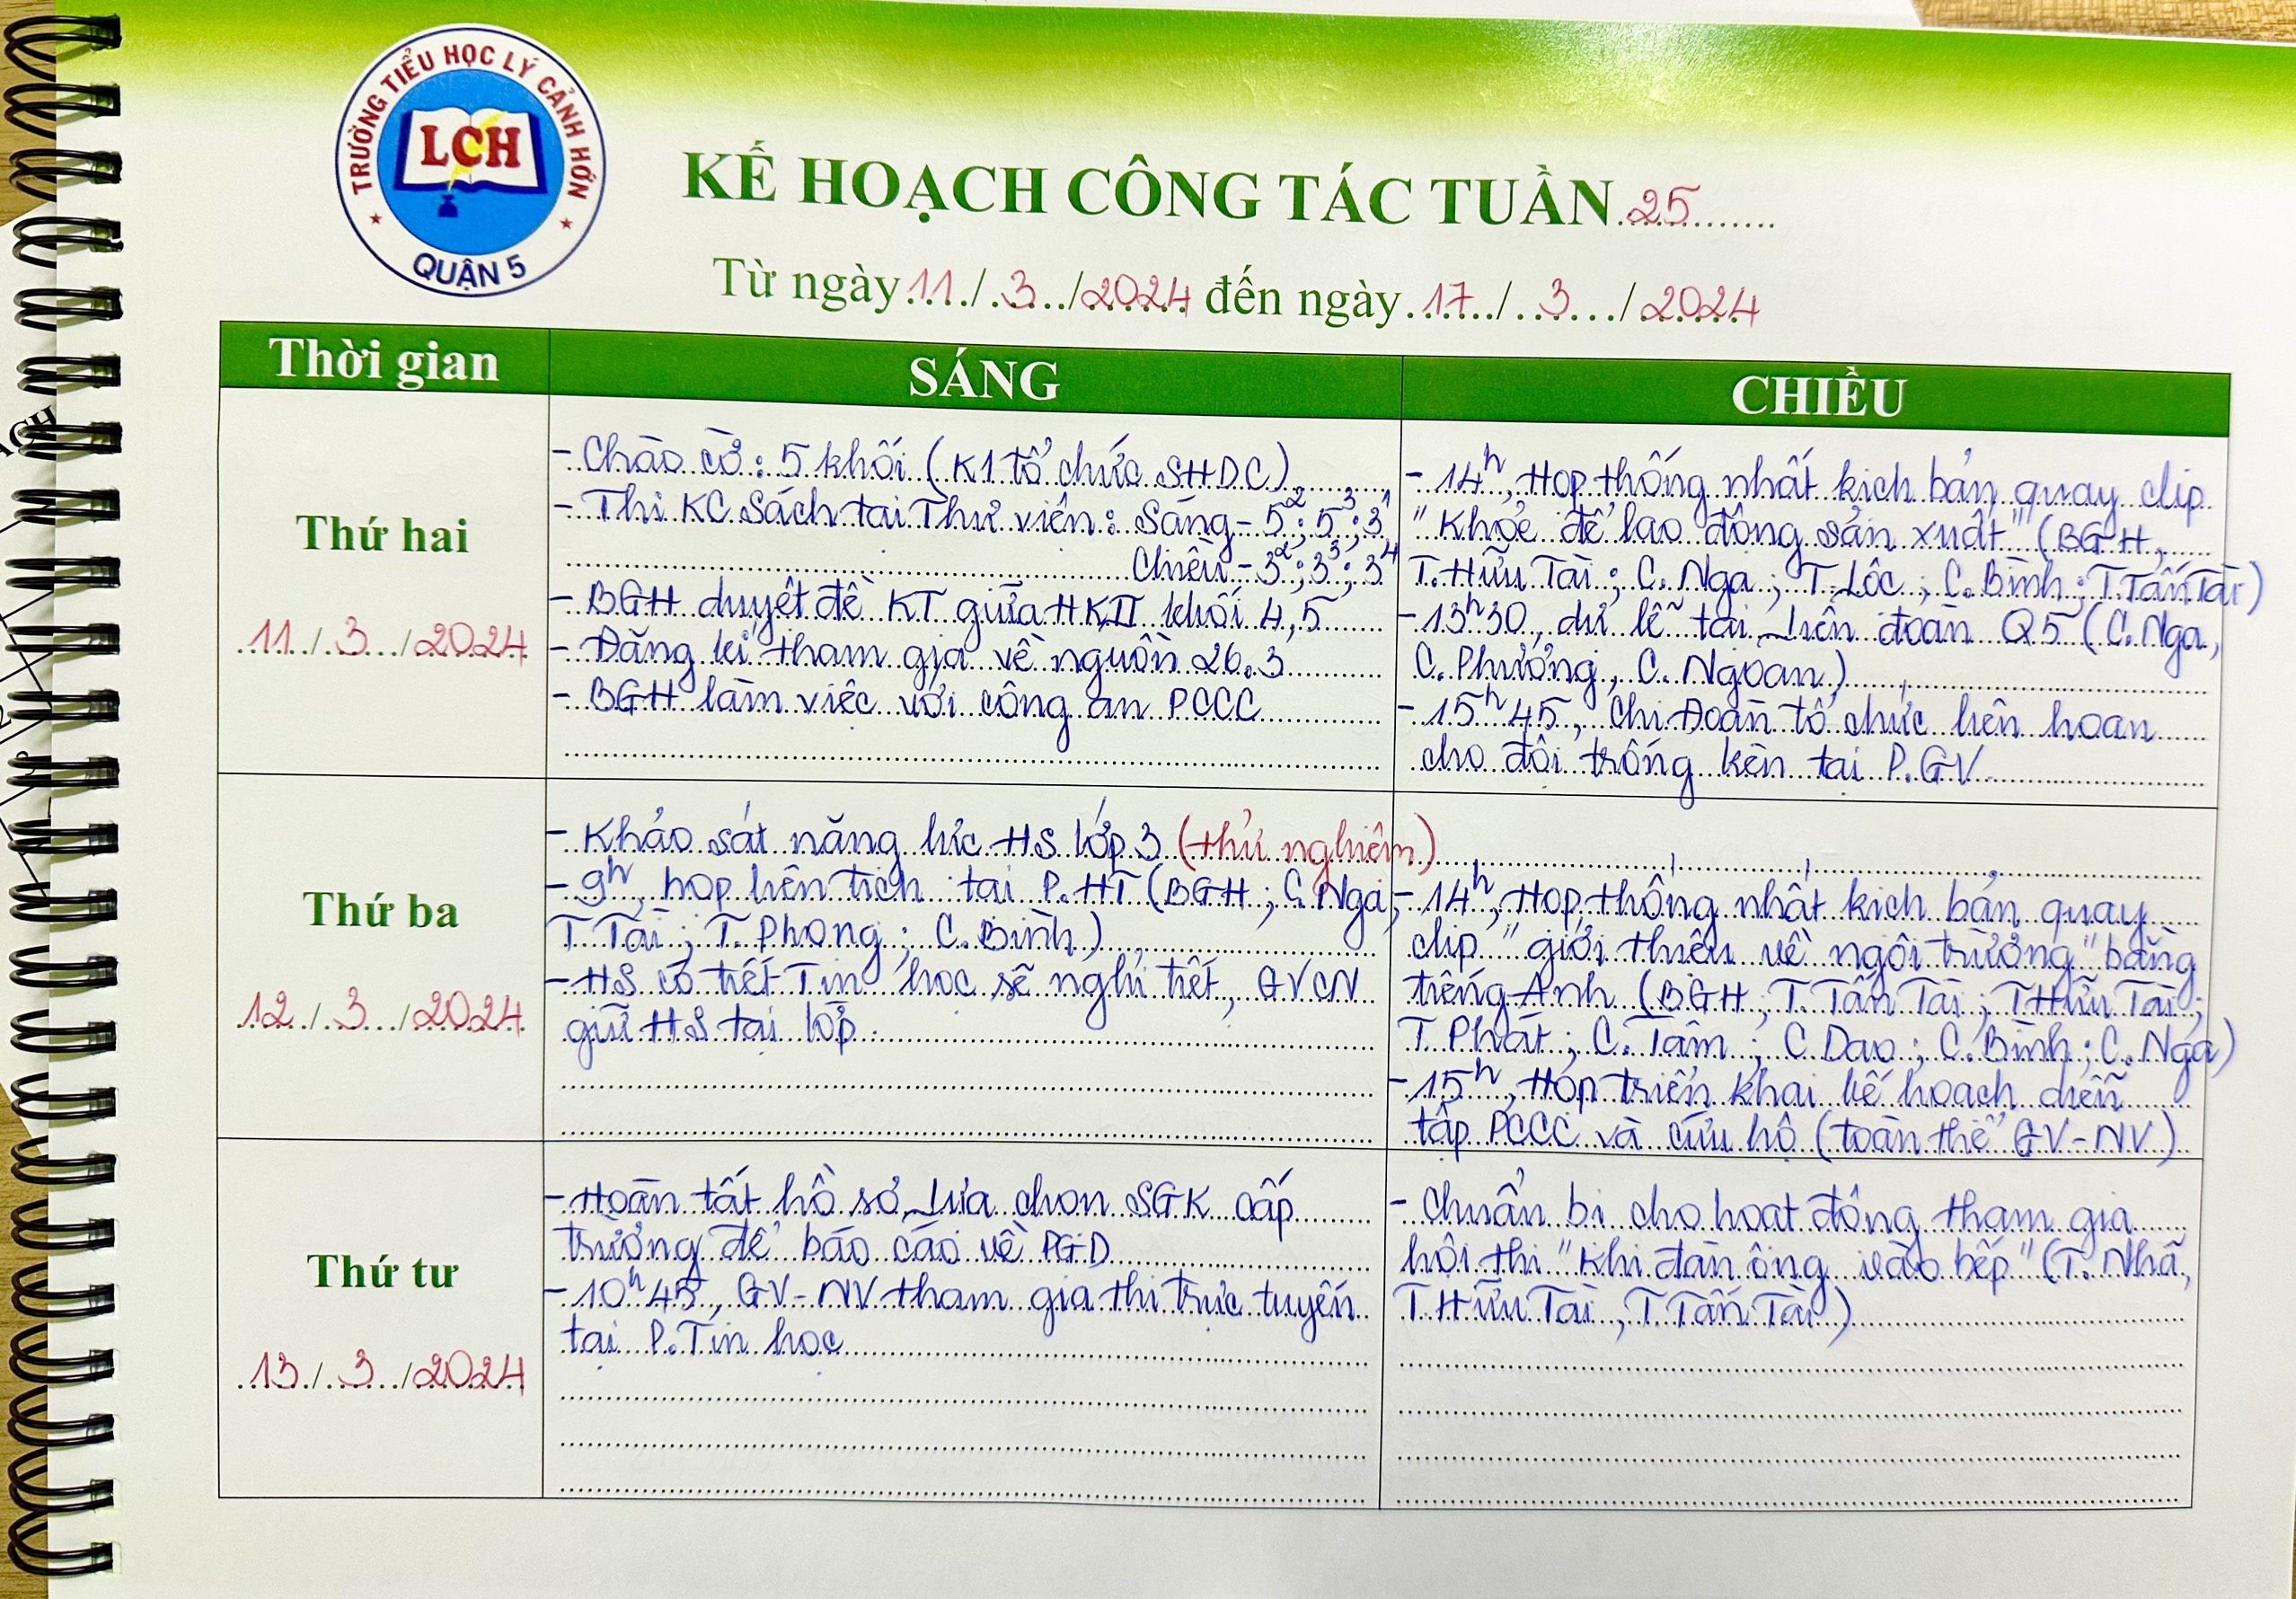 TRƯỜNG TIỂU HỌC LÝ CẢNH HỚN
LCH
QUẬN 5
KẾ HOẠCH CÔNG TÁC TUẦN 25
Từ ngày 11/3/2024 đến ngày 17/3/2024
Thời gian
SÁNG
CHIỀU
Thứ hai
11/3/2024
- Chào cờ: 5 khối (K1 tổ chức SHDC)
- Thi KC Sách tại Thư viện: Sáng - 5²; 5³; 3¹
Chiều - 3²; 3³; 3⁴
- BGH duyệt đề KT giữa HKII khối 4,5
- Đăng kí tham gia về nguồn 26.3
- BGH làm việc với công an PCCC
- 14h, Họp thống nhất kịch bản quay clip
"Khỏe để lao động sản xuất" (BGH,
T. Hữu Tài; C. Nga; T. Lộc; C. Bình; T Tấn Tài)
- 13h30, dự lễ tại Liên đoàn Q5 (C. Nga,
C. Phượng, C. Ngoan)
- 15h45, Chi Đoàn tổ chức liên hoan
cho đội trống kèn tại P.GV
Thứ ba
12/3/2024
- Khảo sát năng lực HS lớp 3 (thử nghiệm)
- 9h, họp liên tịch tại P.HT (BGH; C Nga;
T Tài; T. Phong; C. Bình)
- HS có tiết Tin học sẽ nghỉ tiết, GVCN
giữ HS tại lớp
- 14h, Họp thống nhất kịch bản quay
clip "giới thiệu về ngôi trường" bằng
tiếng Anh (BGH; T. Tấn Tài; T Hữu Tài;
T Phát; C. Tâm; C Dao; C. Bình; C. Nga)
- 15h, Họp triển khai kế hoạch diễn
tập PCCC và cứu hộ (toàn thể GV-NV)
Thứ tư
13/3/2024
- Hoàn tất hồ sơ Lựa chọn SGK cấp
trường để báo cáo về PGD
- 10h45, GV-NV tham gia thi trực tuyến
tại P. Tin học
- Chuẩn bị cho hoạt động tham gia
hội thi "Khi đàn ông vào bếp" (T. Nhã,
T Hữu Tài, T Tấn Tài)